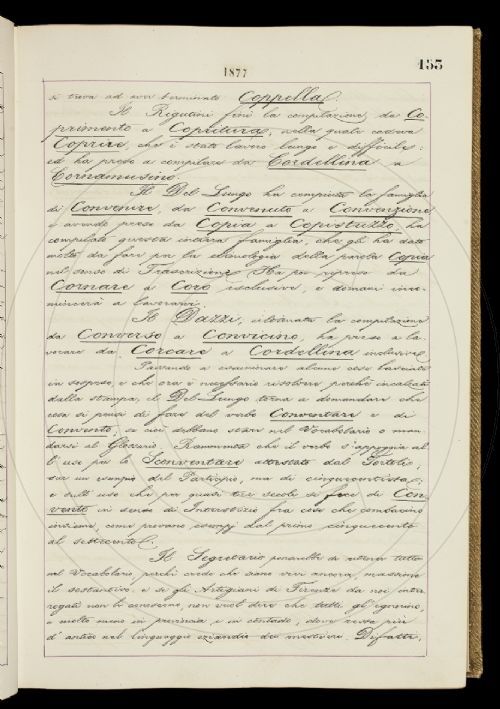 1877
455
si trova ad aver terminato Coppella.
Il Rigutini finì la compilazione, da Co-
primento a Copritura, nella quale cadeva
Coprire, che è stato lavoro lungo e difficile:
ed ha preso a compilare da Cordellina a
Cornamusino.
Il Del-Lungo ha compiuto la famiglia
di Convenire, da Convenuto a Convenzione
e avendo preso da Copia a Copistuzzo, ha
compilato questa intera famiglia, che gli ha dato
molto da fare per la cronologia della parola Copia
nel senso di Trascrizione. Ha poi ripreso da
Cornare a Coro esclusive, e domani inco-
mincerà a lavorarvi.
Il Dazzi, ultimata la compilazione
da Converso a Convicino, ha preso a la-
vorare da Corcare a Cordellina inclusive.
Passando a esaminare alcune cose lasciate
in sospeso, e che ora è necessario risolvere perchè incalzati
dalla stampa, il Del-Lungo torna a domandare che
cosa si pensi di fare del verbo Conventare e di
Convento, se cioè debbano stare nel Vocabolario o man-
darsi al Glossario. Rammenta che il verbo s'appoggia al-
l'uso per lo Sconventare attestato dal
da un esempio del Participio, ma di cinquecentista;
e sull'uso che per quasi tre secoli si fece di Con-
vento in senso di Interstizio fra cose che combacino
insieme, come provano esempj dal primo cinquecento
al settecento.
Il Segretario penserebbe di ritener tutto
nel Vocabolario, perchè crede che siano vivi ancora, massime
il sostantivo; e se gli Artigiani di Firenze da noi inter-
rogati non lo conoscono, non vuol dire che tutti gl'ignorino,
e molto meno in provincia e in contado, dove resta più
d'antico nel linguaggio eziandio dei mestieri. Difatti,